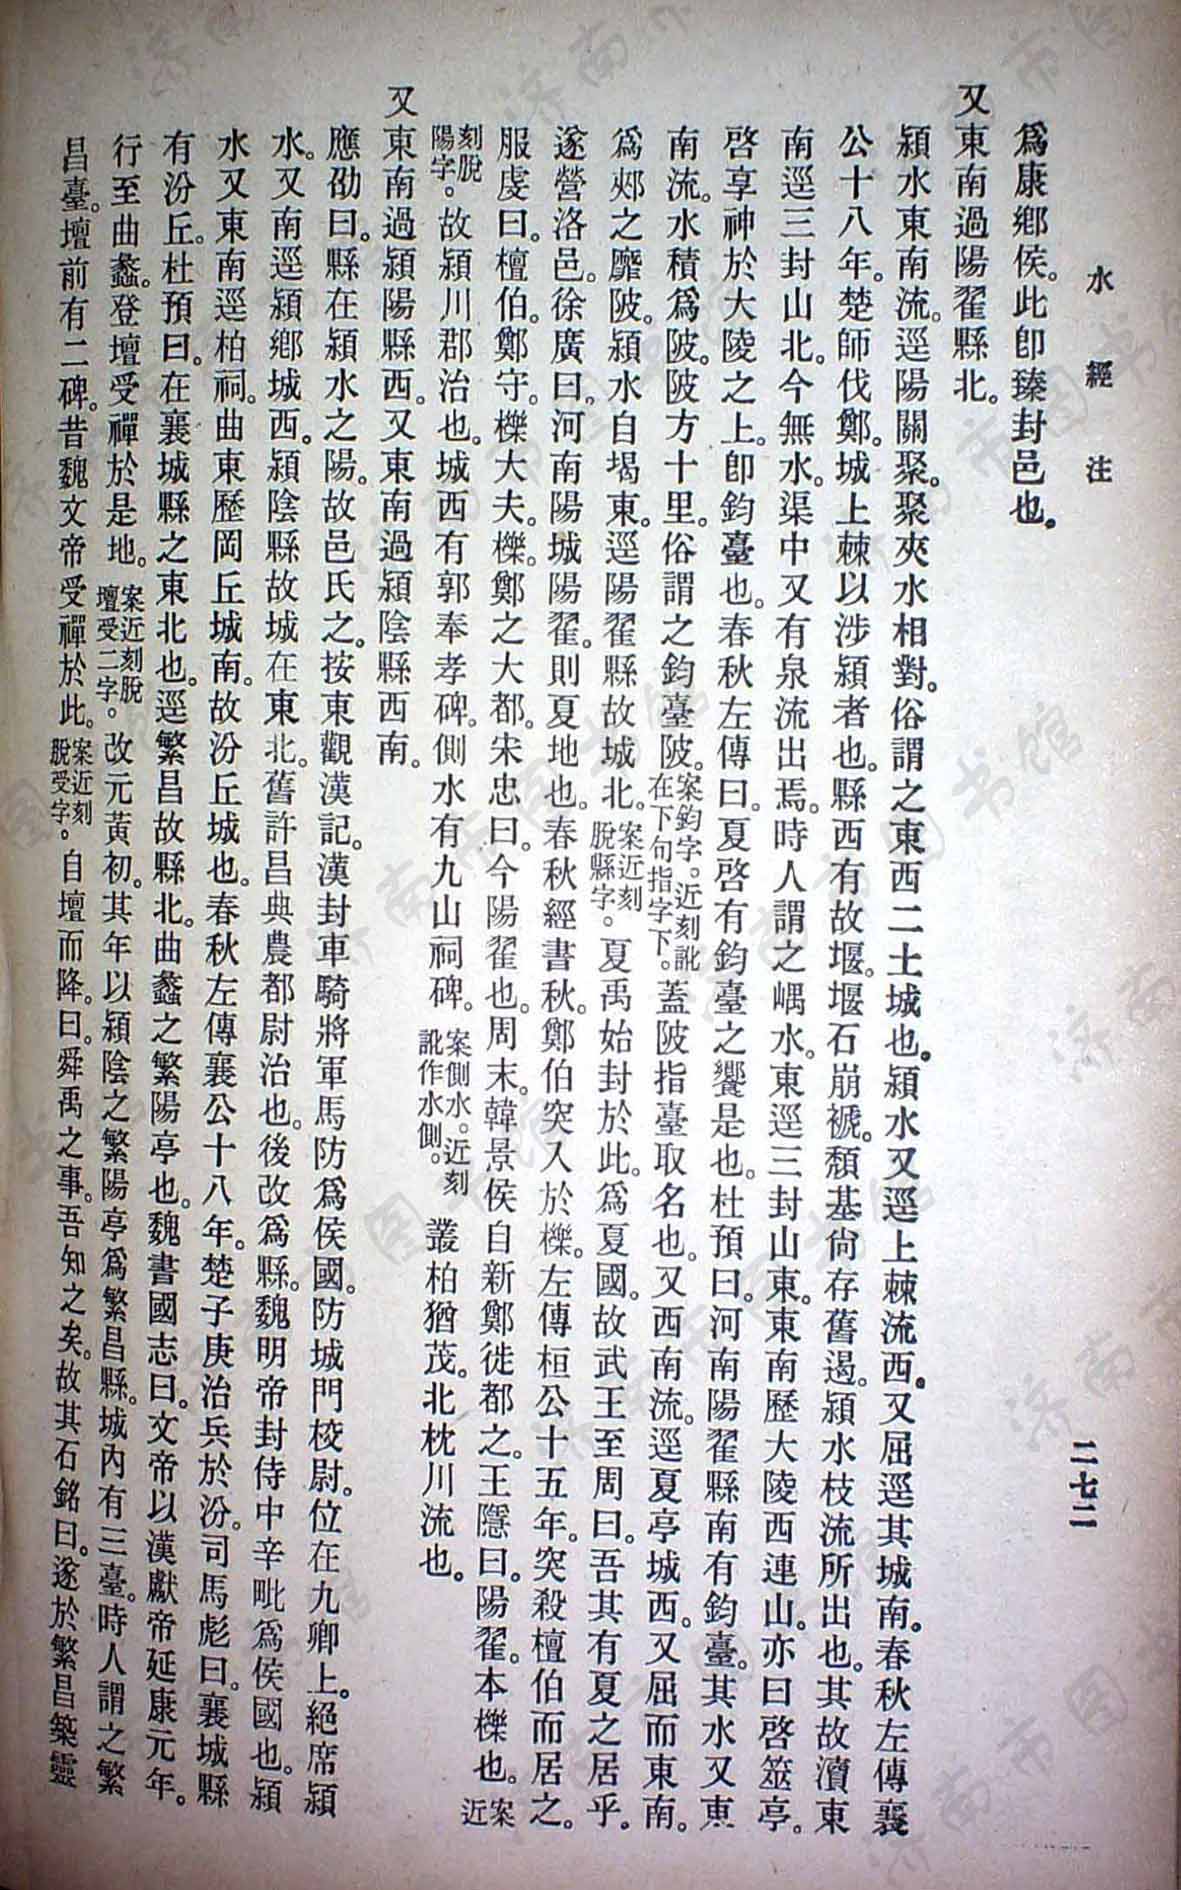 水經注
二七二
爲康鄉侯。此卽臻封邑也。
又東南過陽翟縣北。
潁水東南流。逕陽關聚。聚夾水相對。俗謂之東西二土城也。潁水又逕上棘流西。又屈逕其城南。春秋左傳襄
公十八年。楚師伐鄭。城上棘以涉潁者也。縣西有故堰。堰石崩褫。頹基尙存舊遏。潁水枝流所出也。其故瀆東
南逕三封山北。今無水。渠中又有泉流出焉。時人謂之嵎水。東逕三封山東。東南歷大陵西連山。亦曰啓筮亭。
啓享神於大陵之上。卽鈞臺也。春秋左傳曰。夏啓有鈞臺之饗是也。杜預曰。河南陽翟縣南有鈞臺。其水又東
南流。水積爲陂。陂方十里。俗謂之鈞臺陂。案鈞字。近刻訛在下句指字下。蓋陂指臺取名也。又西南流。逕夏亭城西。又屈而東南。
爲郟之靡陂。潁水自堨東。逕陽翟縣故城北。案近刻脫縣字。夏禹始封於此。爲夏國。故武王至周曰。吾其有夏之居乎。
遂營洛邑。徐廣曰。河南陽城陽翟。則夏地也。春秋經書秋。鄭伯突入於櫟。左傳桓公十五年。突殺檀伯而居之。
服虔曰。檀伯。鄭守。櫟大夫。櫟。鄭之大都。宋忠曰。今陽翟也。周末。韓景侯自新鄭徙都之。王隱曰。陽翟。本櫟也。案近
刻脫陽字。故潁川郡治也。城西有郭奉孝碑。側水有九山祠碑。案側水。近刻訛作水側。叢柏猶茂。北枕川流也。
又東南過潁陽縣西。又東南過潁陰縣西南。
應劭曰。縣在潁水之陽。故邑氏之。按東觀漢記。漢封車騎將軍馬防爲侯國。防城門校尉。位在九卿上。絕席潁
水。又南逕潁鄉城西。潁陰縣故城在東北。舊許昌典農都尉治也。後改爲縣。魏明帝封侍中辛毗爲侯國也。潁
水又東南逕柏祠。曲東歷岡丘城南。故汾丘城也。春秋左傳襄公十八年。楚子庚治兵於汾。司馬彪曰。襄城縣
有汾丘。杜預曰。在襄城縣之東北也。逕繁昌故縣北。曲蠡之繁陽亭也。魏書國志曰。文帝以漢獻帝延康元年。
行至曲蠡。登壇受禪於是地。案近刻脫壇受二字。改元黃初。其年以潁陰之繁陽亭爲繁昌縣。城內有三臺。時人謂之繁
昌臺。壇前有二碑。昔魏文帝受禪於此。案近刻脫受字。自壇而降。曰。舜禹之事。吾知之矣。故其石銘曰。遂於繁昌築靈